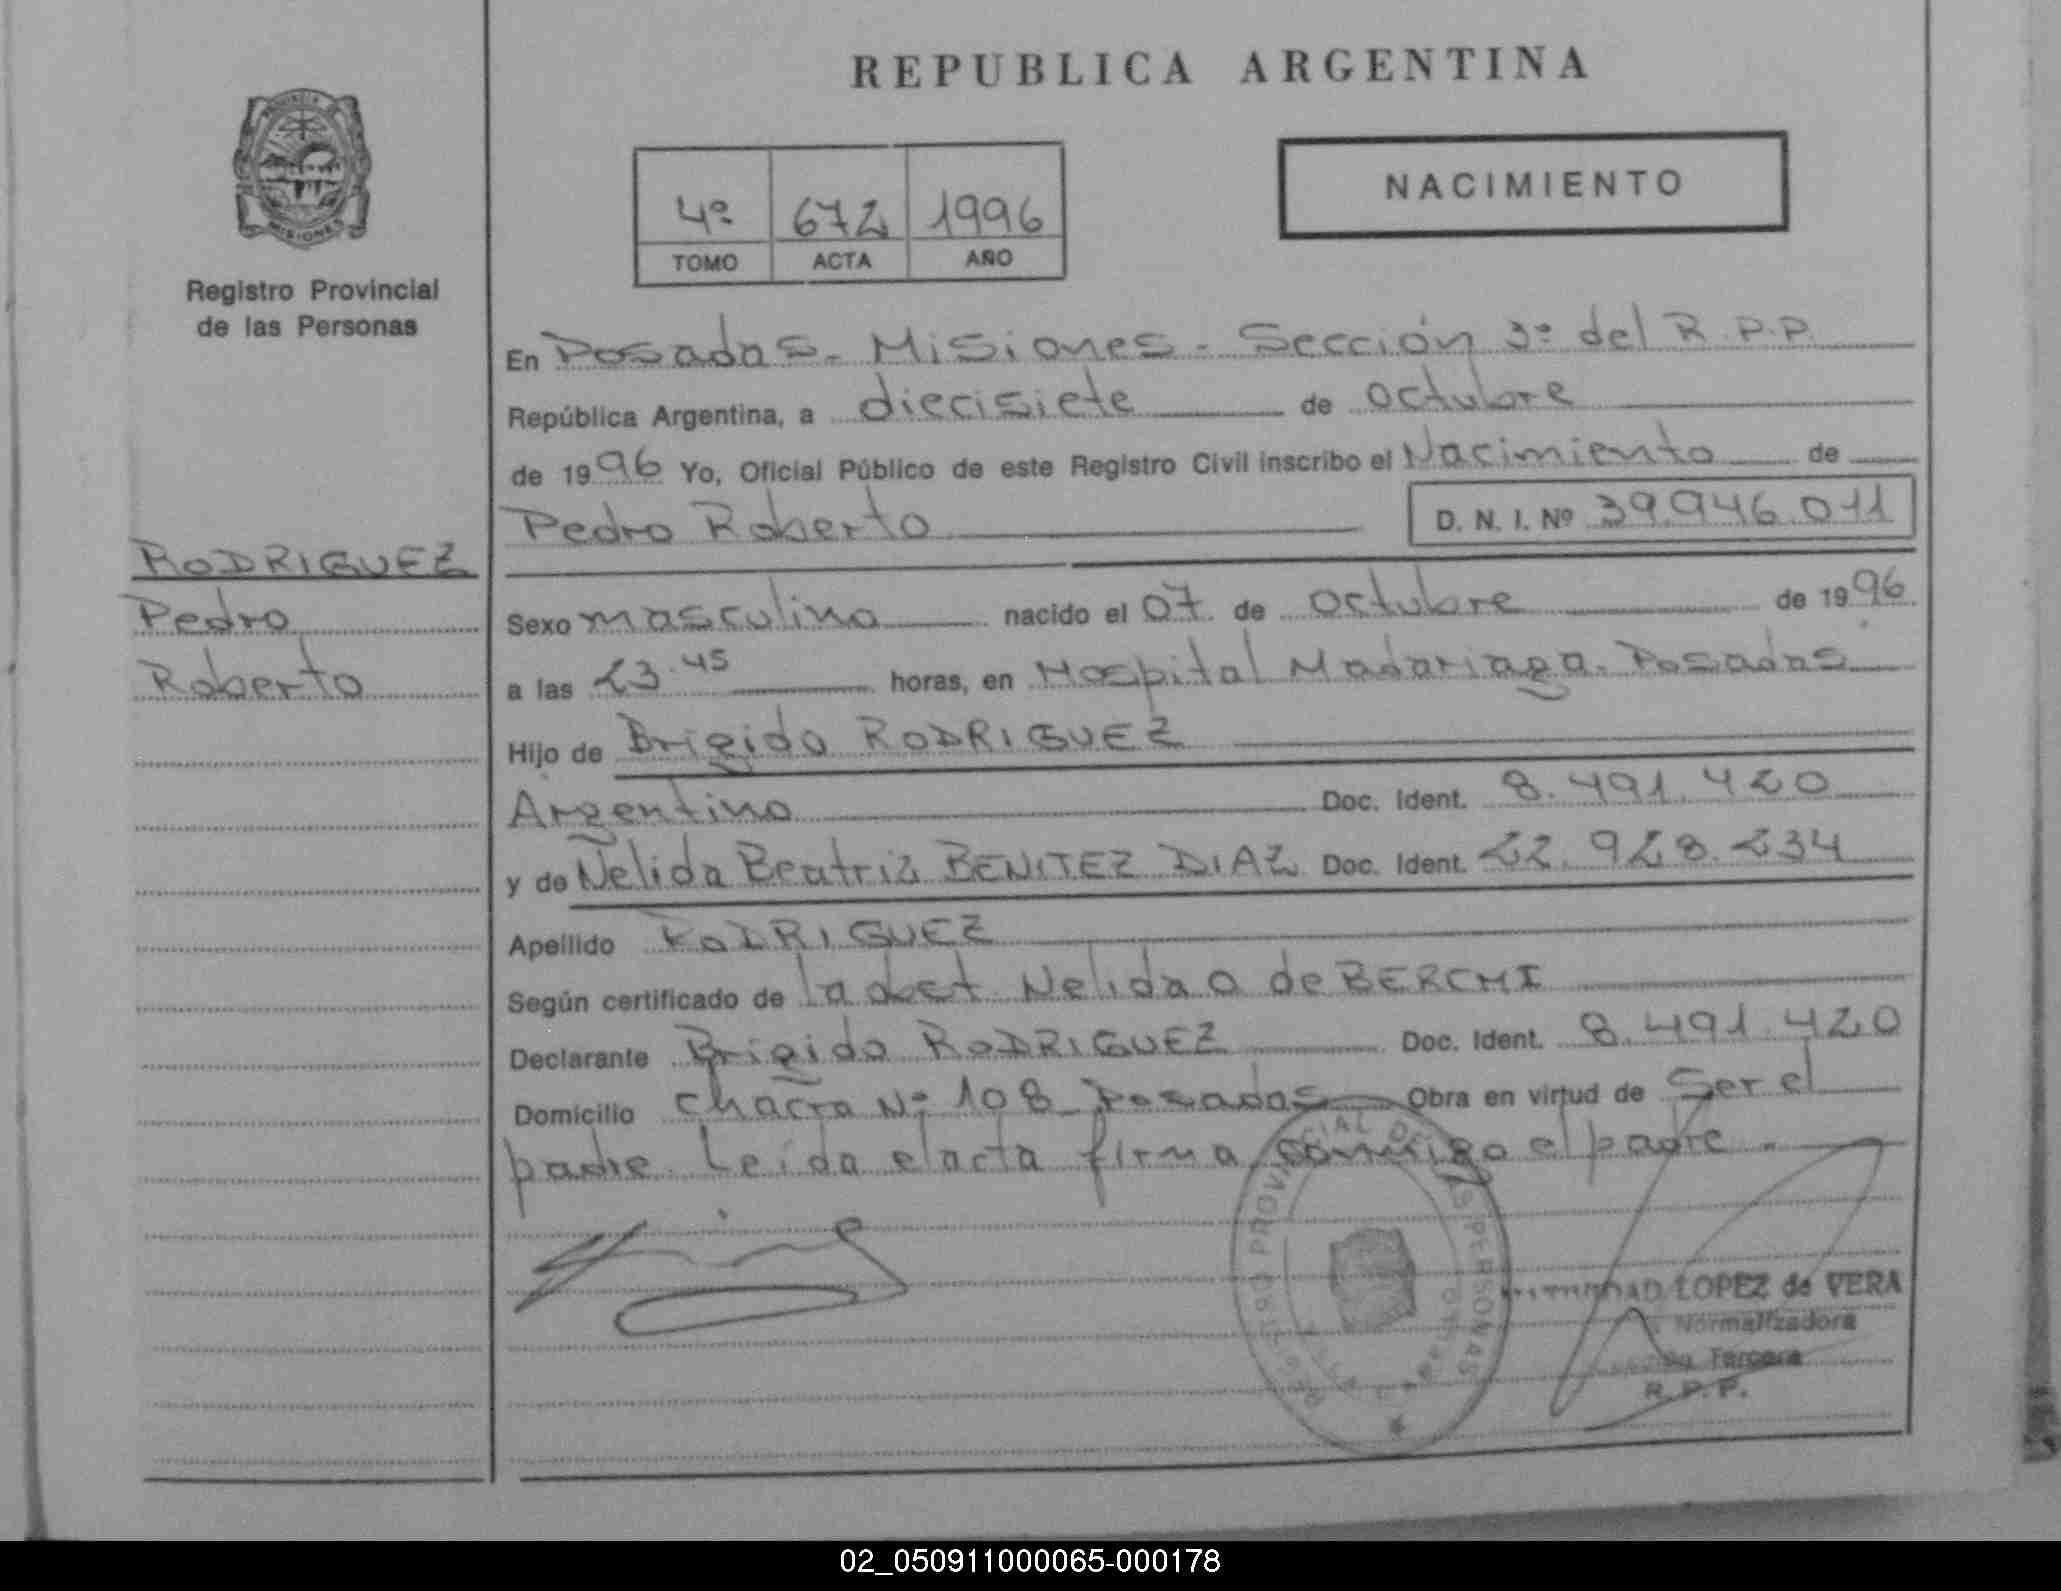 REPUBLICA ARGENTINA
PROVINCIA DE
MISIONES
Registro Provincial
de las Personas
4º 672 1996
TOMO ACTA AÑO
NACIMIENTO
En Posadas - Misiones - Sección 3º del R.P.P.
República Argentina, a diecisiete de octubre
de 1996 Yo, Oficial Público de este Registro Civil inscribo el Nacimiento de
Pedro Roberto D. N. I. Nº 39.946.011
RODRIGUEZ
Pedro
Roberto
Sexo masculino nacido el 07 de octubre de 1996
a las 23.45 horas, en Hospital Madariaga. Posadas
Hijo de Brigido RODRIGUEZ
Argentino Doc. Ident. 8.491.420
y de Nelida Beatriz BENITEZ DIAZ Doc. Ident. 22.928.234
Apellido RODRIGUEZ
Según certificado de la obst. Nelida O de BERCHI
Declarante Brigido RODRIGUEZ Doc. Ident. 8.491.420
Domicilio Chacra Nº 108 Posadas Obra en virtud de Ser el
padre. Leida el acta firma conmigo el padre.
REGISTRO PROVINCIAL DE LAS PERSONAS
LOPEZ de VERA
Normalizadora
Tercera
R.P.P.
02_050911000065-000178